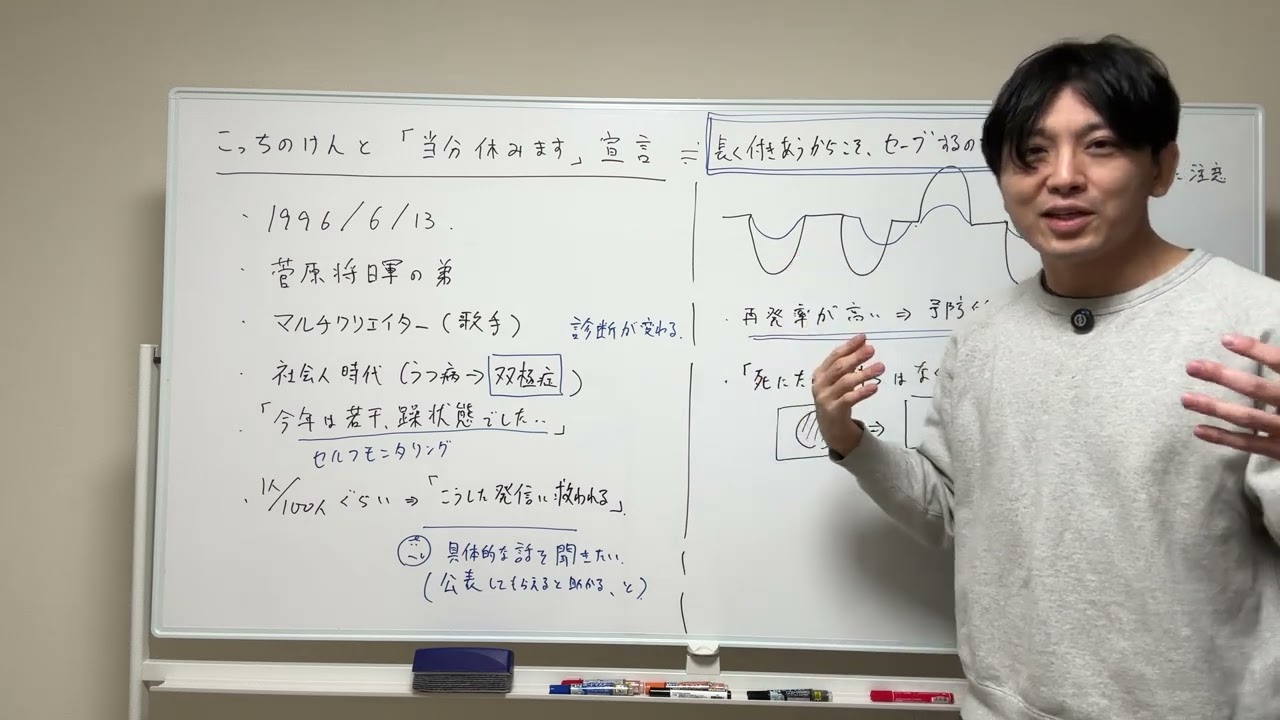 こっちのけんと「当分休みます」宣言 ≒ 長く付きあうからこそ、セーブするの
注意
・1996/6/13.
・菅原将暉の弟
・マルチクリエイター(歌手)
診断が変わる.
・社会人時代(うつ病→双極症)
・「今年は若干、躁状態でした‥」
セルフモニタリング
・1人/100人ぐらい⇒「こうした発信に救われる」
具体的な話を聞きたい.
(公表してもらえると助かる、と)
・再発率が高い⇒予防
・「死にた
はなく
⇒